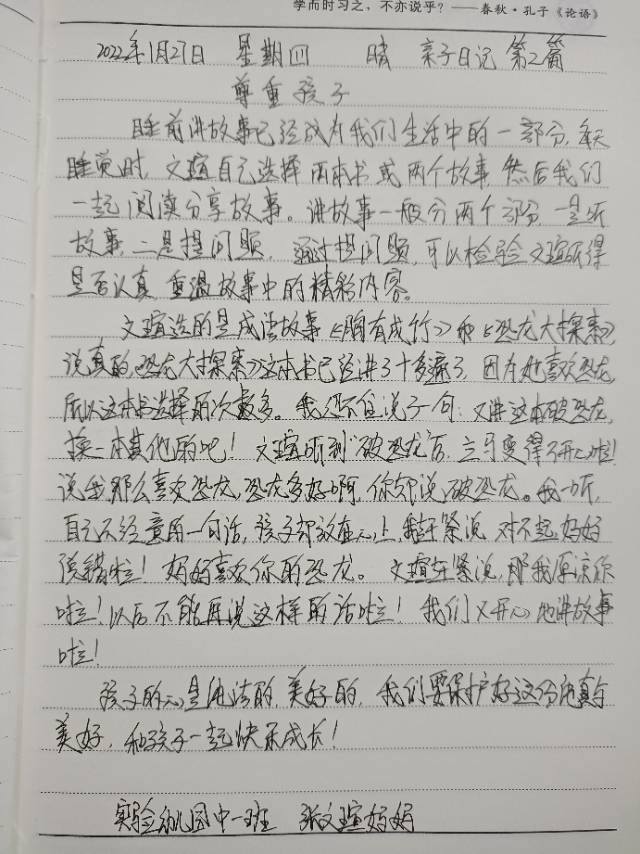 学而时习之，不亦说乎？——春秋·孔子《论语》
2022年1月27日 星期四 晴 亲子日记 第2篇
尊重孩子
睡前讲故事已经成为我们生活中的一部分，每天
睡觉时，文瑄自己选择两本书或两个故事，然后我们
一起阅读分享故事。讲故事一般分两个部分，一是听
故事，二是提问题，通过提问题，可以检验文瑄听得
是否认真，重温故事中的精彩内容。
文瑄选的是成语故事《胸有成竹》和《恐龙大探索》，
说真的，《恐龙大探索》这本书已经讲了十多遍了，因为她喜欢恐龙，
所以这本书选择的次数多。我还不自说了一句：又讲这本破恐龙，
换一本其他的吧！文瑄听到“破恐龙”后，立马变得不开心啦！
说我那么喜欢恐龙，恐龙多好啊，你却说破恐龙。我一听，
自己不经意的一句话，孩子却放在心上，我赶紧说，对不起，妈妈
说错啦！妈妈喜欢你的恐龙。文瑄赶紧说，那我原谅你
啦！以后不能再说这样的话啦！我们又开心地讲故事
啦！
孩子的心是纯洁的，美好的，我们要保护好这份纯真与
美好，和孩子一起快乐成长！
实验幼儿园中一班 张文瑄妈妈